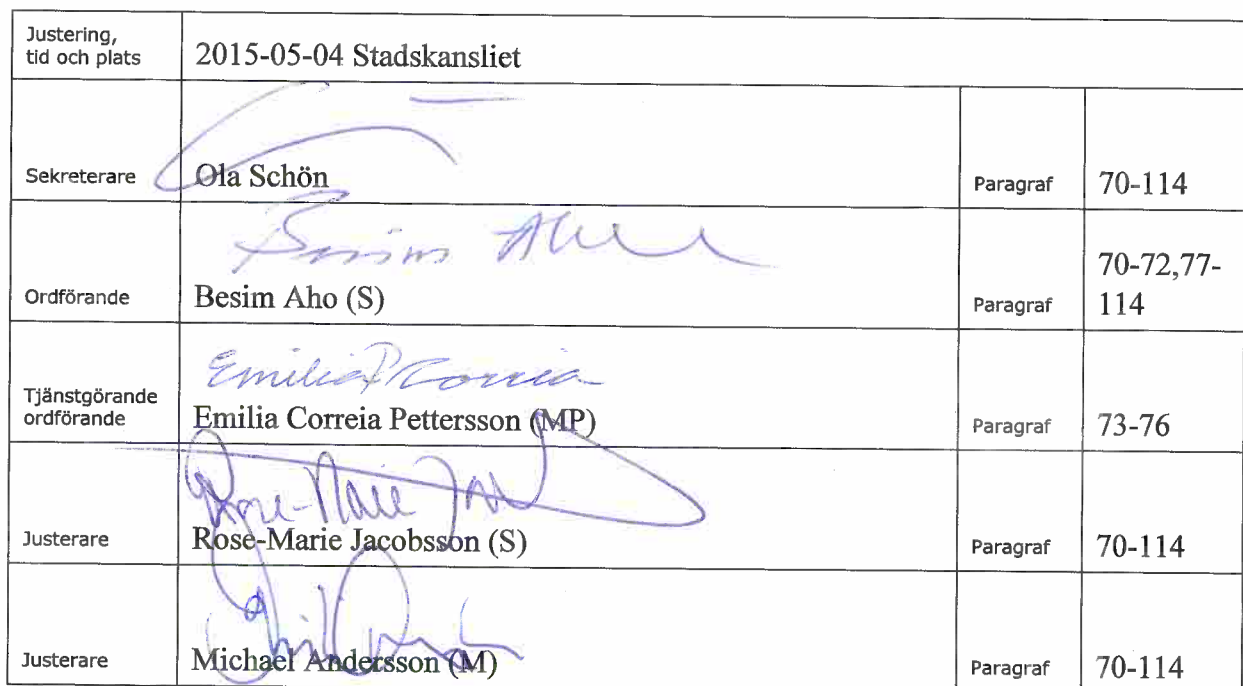 Justering,
tid och plats 2015-05-04 Stadskansliet
Sekreterare Ola Schön Paragraf 70-114
Besim Aho
Ordförande Besim Aho (S) Paragraf 70-72,77-
114
Emilia P Correia
Tjänstgörande
ordförande Emilia Correia Pettersson (MP) Paragraf 73-76
Rose-Marie
Justerare Rose-Marie Jacobsson (S) Paragraf 70-114
Justerare Michael Andersson (M) Paragraf 70-114